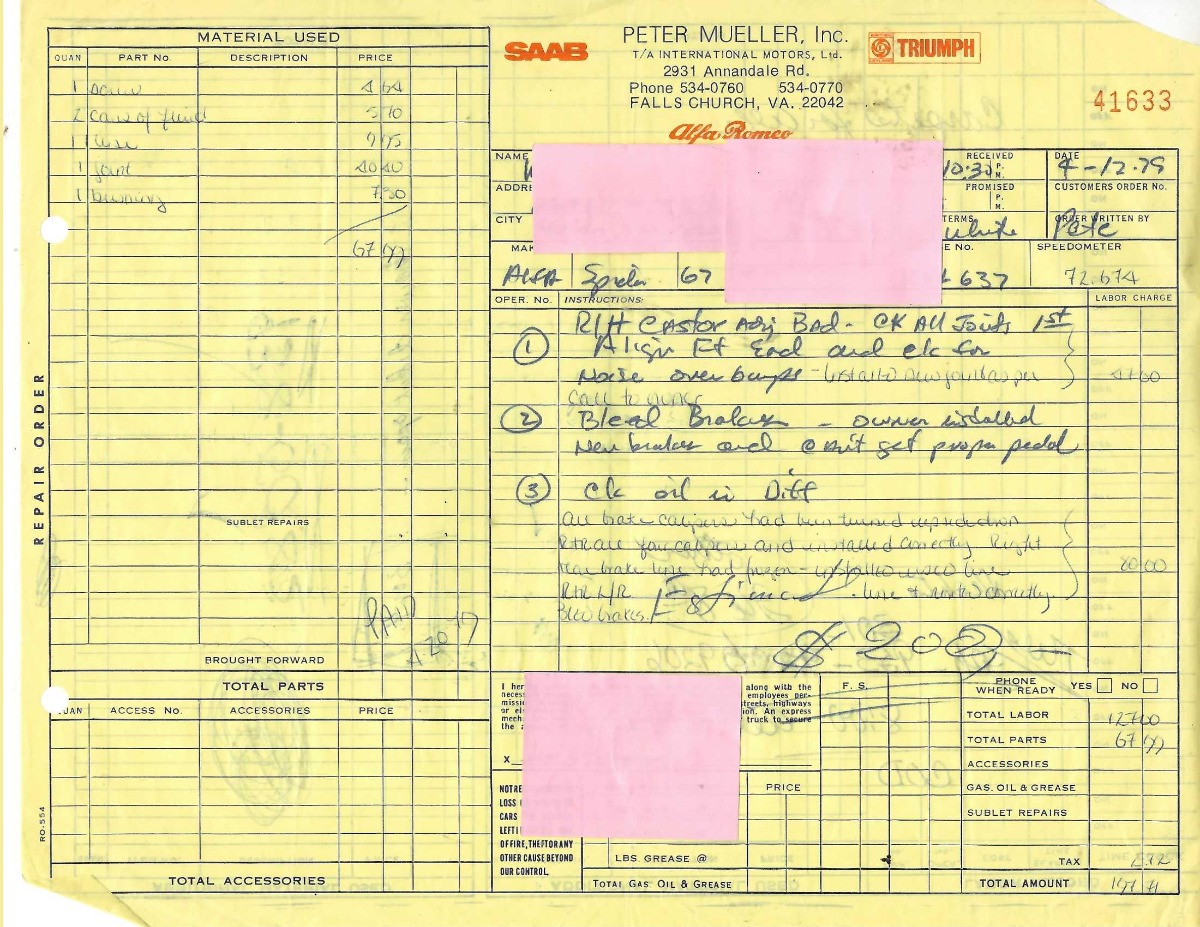 MATERIAL USED
QUAN PART No. DESCRIPTION PRICE
1 4 64
2 cans of fluid 5 10
1 9 95
1 joint 40 40
1 bushing 7.30
67
REPAIR ORDER
SUBLET REPAIRS
PAID
BROUGHT FORWARD
TOTAL PARTS
QUAN ACCESS No. ACCESSORIES PRICE
RO-554
TOTAL ACCESSORIES
SAAB
PETER MUELLER, Inc.
T/A INTERNATIONAL MOTORS, Ltd.
2931 Annandale Rd.
Phone 534-0760 534-0770
FALLS CHURCH, VA. 22042
Alfa Romeo
TRIUMPH
41633
NAME
RECEIVED
10:30 P.M.
DATE
4-12-79
ADDRE
PROMISED
P.M.
CUSTOMERS ORDER No.
CITY
TERMS
White
ORDER WRITTEN BY
Pete
MAK
E No.
SPEEDOMETER
Alfa Spider 67 637 72.674
OPER. No. INSTRUCTIONS: LABOR CHARGE
R/H Castor Adj Bad - CK All Joints 1st
1 Align Ft End and ck for
Noise over bumps - installed new joint as per
call to owner
2 Bleed Brakes - owner installed
New brakes and can't get proper pedal
3 Ck oil in Diff
All brake calipers had been turned
calipers and installed correctly Right
rear brake line had frozen - installed used line
R+R L/R line & routed correctly.
Bled brakes.
80 00
$ 202 —
I her along with the
neces employees per-
missio treets, highways
or els ion. An express
mech truck to secure
the a
X
F. S.
PHONE WHEN READY YES NO
TOTAL LABOR 127 00
TOTAL PARTS 67
ACCESSORIES
GAS. OIL & GREASE
SUBLET REPAIRS
TAX
TOTAL AMOUNT
NOT RE
LOSS
CARS
LEFT I
OF FIRE, THEFT OR ANY
OTHER CAUSE BEYOND
OUR CONTROL.
PRICE
LBS. GREASE @
TOTAL GAS. OIL & GREASE